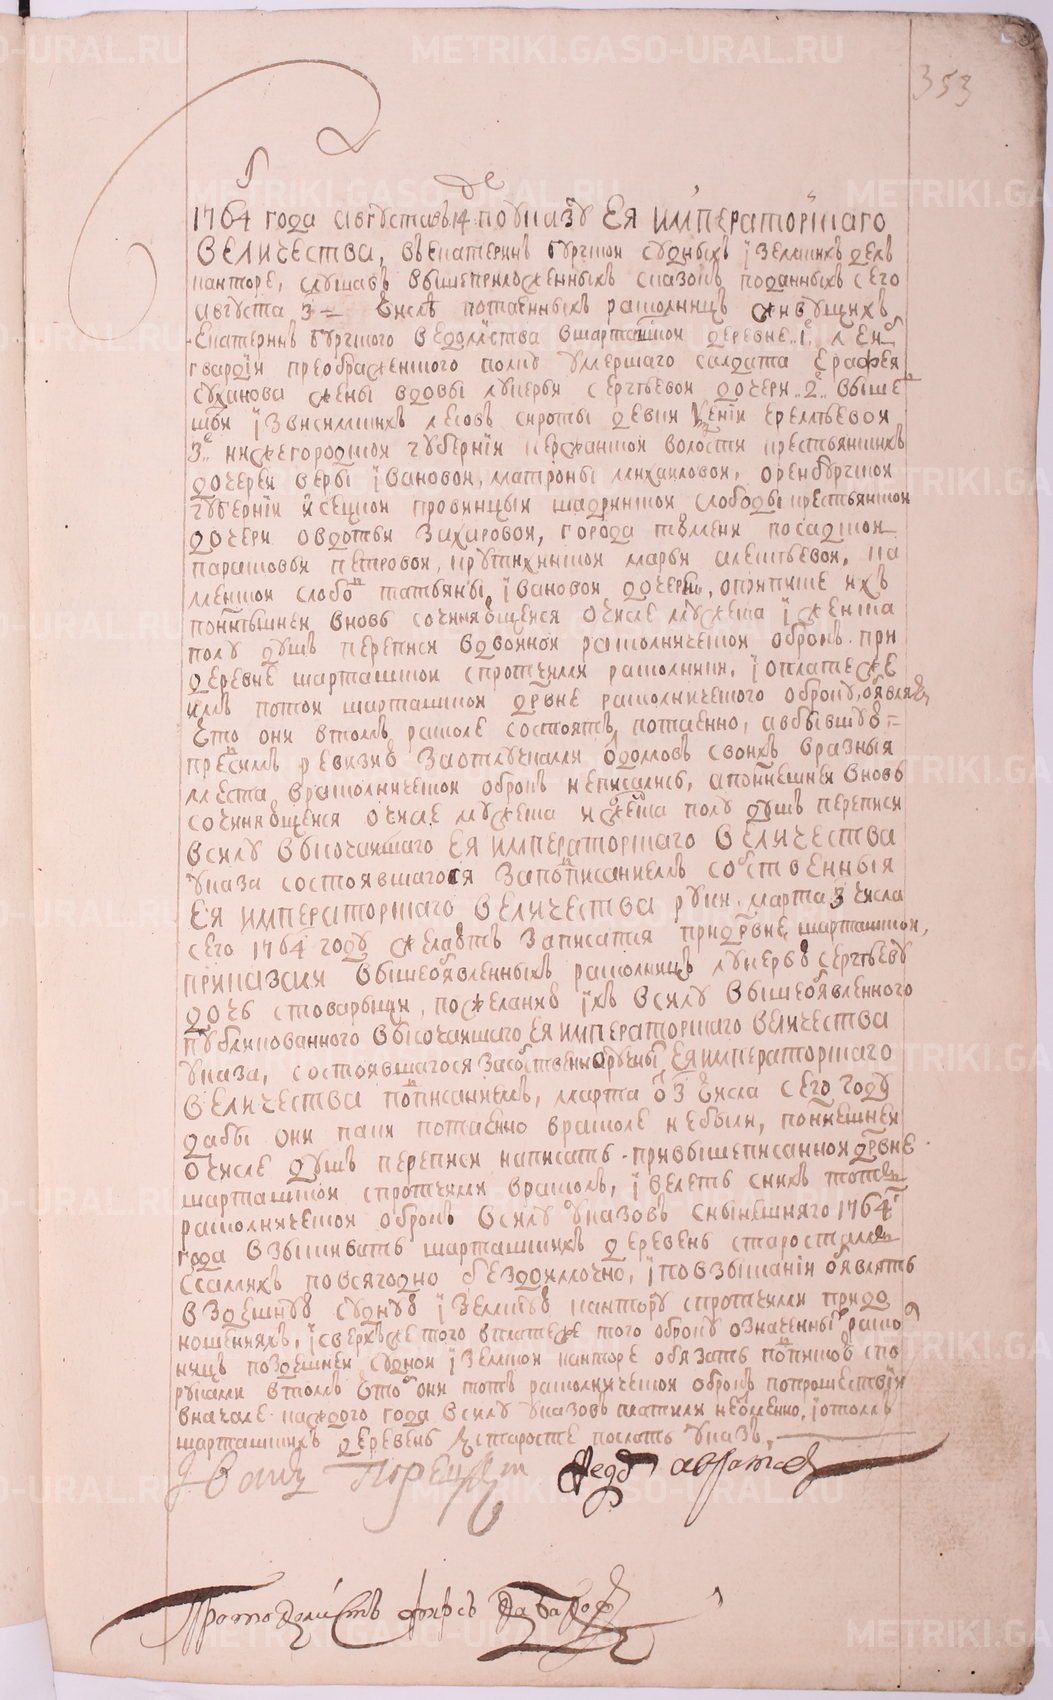 353
1764 года августа въ 14 де по указу ЕЯ ИМПЕРАТОРСКАГО
ВЕЛИЧЕСТВА, въ екатеринъ бургской судныхъ і земскихъ делъ
канторе, слушавъ вышеприложенныхъ сказокъ поданныхъ сего
августа 3 числа потаенныхъ раскольницъ живущихъ
Екатеринъ бургского ведомства в шарташской деревне 1 лейб
гвардіи преображенского полку умершаго салдата Ерафея
суханова жены вдовы лукерьи сергеевой дочери 2 выше
і зви лесовъ сироты девки ксеніи еремеевой
3 нижегородской губерніи волости крестьянскихъ
дочерей івановой, матроны михайловой, оренбургской
губерніи исецкой провинцыи шадринской слободы крестьянской
дочери овдотьи захаровой, города тюмени посадской
парасковьи петровой, марьи алексеевой, ка
менской слобод татьяны івановой дочерью, о приписке ихъ
по нынешней вновь сочиняющейся о числе мужеска і женска
полу душъ переписи в двойной раскольнической окладъ при
деревне шарташской с протчими раскольники, і о платеже
имъ по той шарташской дрвне раскольнического окладу, объявля
что они в томъ расколе состоятъ потаенно, а в бывшую
прежнемъ ревизію за отлучками от домовъ своихъ в разныя
места в раскольнической окладъ не писались, а по нынешней вновь
сочиняющейся о числе мужеска и женска полу душъ переписи
в силу высочайшаго ЕЯ ИМПЕРАТОРСКАГО ВЕЛИЧЕСТВА
указа состоявшагося за подписаниемъ собственныя
ЕЯ ИМПЕРАТОРСКАГО ВЕЛИЧЕСТВА руки марта 3 числа
сего 1764 году желаютъ записатся при дрвне шарташской,
приказали вышеобъявленныхъ раскольницъ лукерью сергееву
дочь с товарыщи, по желанию іхъ в силу вышеобъявленного
публикованного высочайшаго ЕЯ ИМПЕРАТОРСКАГО ВЕЛИЧЕСТВА
указа, состоявшагося за собственноручным ЕЯ ИМПЕРАТОРСКАГО
ВЕЛИЧЕСТВА подписаниемъ, марта 3 числа сего году
дабы они паки потаенно в расколе не были, по нынешней
о числе душъ переписи написать при вышеписанной дрвне
шарташской с протчими в расколъ, і велеть с нихъ тотъ
раскольнической окладъ в силу указовъ с нынешняго 1764
года взыскивать шарташскихъ деревень старостам
самихъ повсягодно бездоимочно, і по взыскании объявлять
в здешнюю судную і земскую кантору с протчими при до
ношенияхъ, і сверхъ же того в платеже того окладу означенных раско
ницъ по здешней судной і земской канторе обязать подпискою с по
руками в томъ чтоб они тотъ раскольнической окладъ по прошествіи
в начале каждого года в силу указовъ платили неотменно, і о томъ
шарташскихъ деревень к старосте послать указъ.
Иванъ
Федор
Протоколистъ Фирсъ